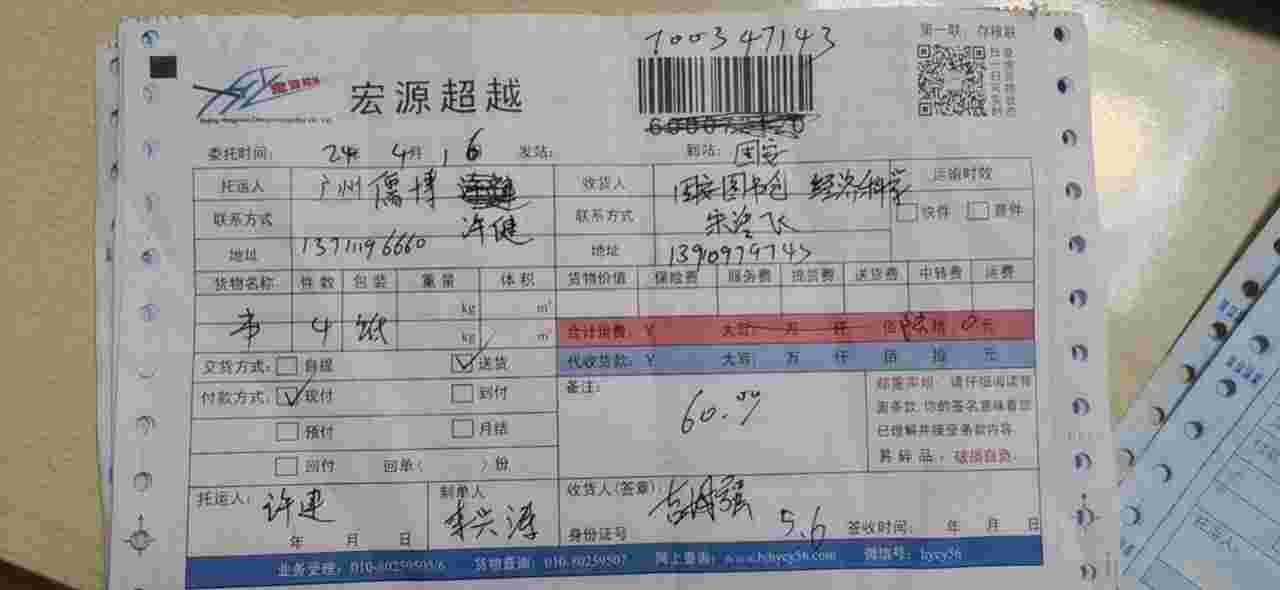 第一联：存根联
100347143
宏源超越
委托时间： 24年 4月 16 发站： 到站： 固安
托运人 广州儒博 收货人 固安图书仓 经济科学 运输时效
联系方式 许健 联系方式 宋 飞 快件 普件
地址 13711196660 地址
货物名称 件数 包装 重量 体积 货物价值 保险费 服务费 提货费 送货费 中转费 运费
kg m³
书 4 纸 kg 合计运费：￥ 大写 万 仟 佰 陆 拾 0 元
交货方式： 自提 送货 代收货款：￥ 大写 万 仟 佰 拾 元
付款方式： 现付 到付 备注： 60.00 郑重声明：请仔细阅读背
面条款，你的签名意味着您
预付 月结 已理解并接受条款内容
回付 回单（ ）份 易碎品，破损自负
托运人： 许建 制单人 李兴涛 收货人(签章)
年 月 日 身份证号 5.6 签收时间： 年 月 日
业务受理：010-60259505/6 货物查询：010-60259507 网上查询：www.bjhycy56.com 微信号：hycy56